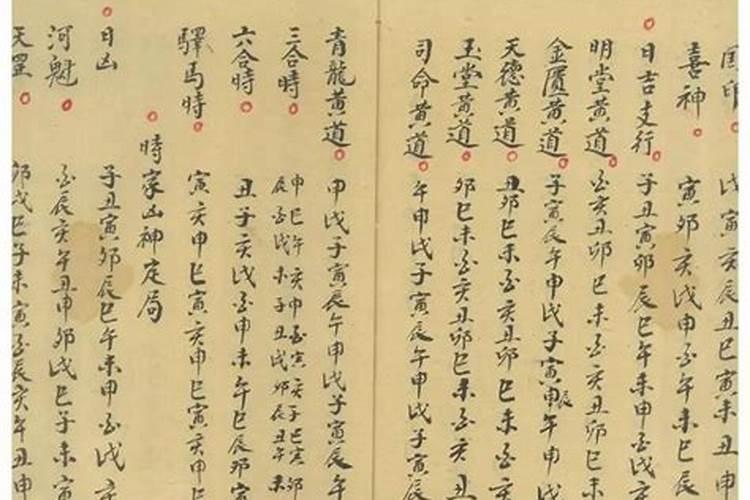 印 戊寅亥辰丑巳寅未丑申
喜神 寅卯亥戌申酉午未巳辰
日吉支行 子丑寅卯辰巳午未申酉戌亥
明堂黃道 酉亥丑卯巳未酉亥丑卯巳未
金匱黃道 子寅辰午申戌子寅申辰午申
天德黃道 丑卯巳未酉亥丑卯巳未酉
玉堂黃道 卯巳未酉亥丑卯巳未酉亥丑
司命黃道 午申戌子寅辰午申戌子寅辰
青龍黃道 申戌子寅辰午申戌子寅辰午
三合時 申巳午亥申酉寅亥子巳寅卯
辰酉戌未子丑戌卯辰丑午未
六合時 丑子亥戌酉申未午巳辰卯寅
驛馬時 寅亥申巳寅亥申巳寅亥申巳
時家凶神定局
日凶 子丑寅卯辰巳午未申酉戌亥
河魁 酉辰亥午丑申卯戌巳子未寅
天罡 卯戌巳子未寅酉辰亥午丑申